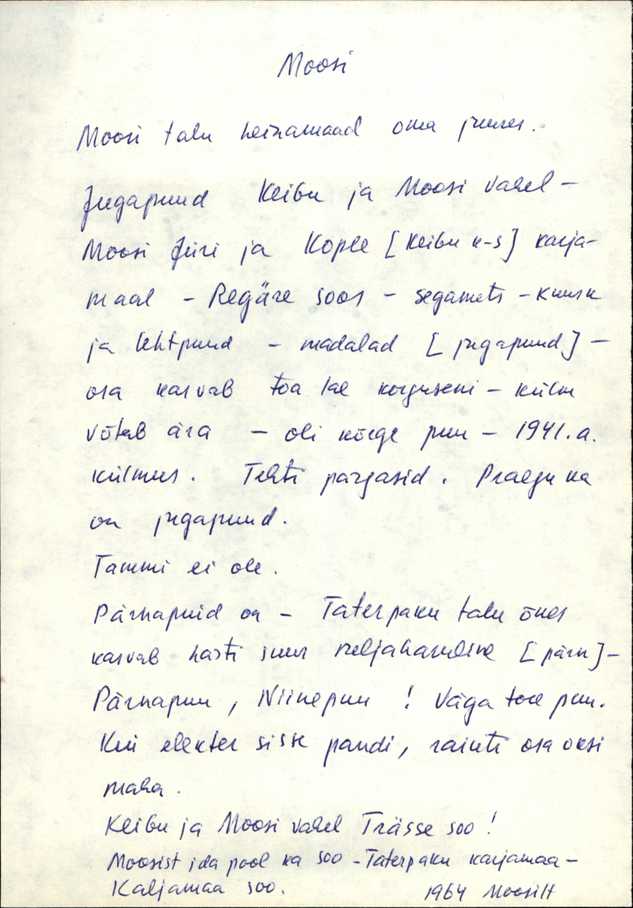 Moosi
Moosi talu heinamaad oma juures.
Jugapuud Keibu ja Moosi vahel –
Moosi Jüri ja Kople [Keibu k-s] karja-
maal – Regäre soos – segamets – kuusk
ja lehtpuud – madalad [jugapuud] –
osa kasvab toa lae korguseni – külm
võtab ära – oli kõrge puu – 1941.a.
külmus. Tehti pärgasid. Praegu ka
on jugapuud.
Tammi ei ole.
Pärnapuid on – Taterpaku talu õues
kasvab hästi suur neljaharuline [pärn] –
Pärnapuu, Niinepuu ! Väga tore puu.
Kui elekter sisse pandi, raiuti osa oksi
maha.
Keibu ja Moosi vahel Trässe soo !
Moosist ida pool ka soo – Taterpaku karjamaa –
Kaljamaa soo. 1964 Moosi